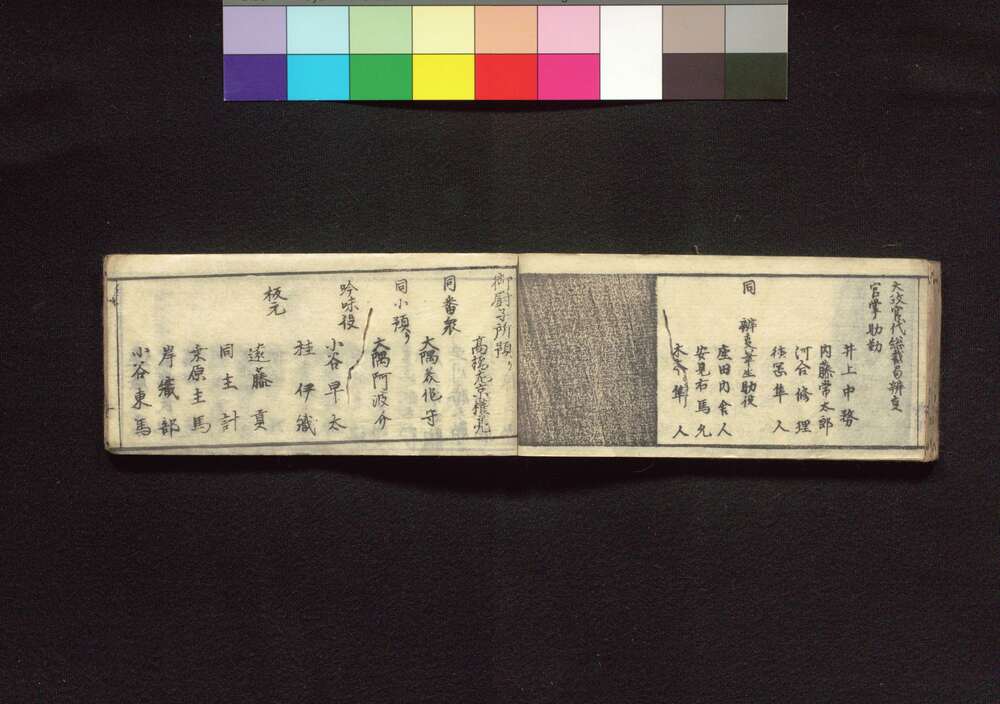 太政官代総裁局辨事
官掌助勤
井上中務
内藤常太郎
河合修理
隼人
同
辨事筆生助役
座田内舎人
安見右馬允
隼人
御厨子所預り
高橋左京権亮
同番衆
大隅美作守
同小預り
大隅阿波介
吟味役
小谷早太
桂伊織
板元
遠藤貢
同主計
桒原主馬
岸織部
小谷東馬